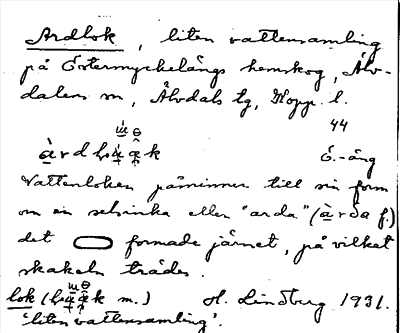 Ardlok, liten vattensamling
på Östermyckelängs hemskog, Älv-
dalens sn, Älvdals tg, Kopp. l.
44
Ö.-äng
Vattenloken påminner till sin form
om en selsinka eller "arda" (àrda f.)
det formade järnet, på vilket
skakeln trädes.
lok m.) H. Lindberg 1931.
'liten vattensamling'.